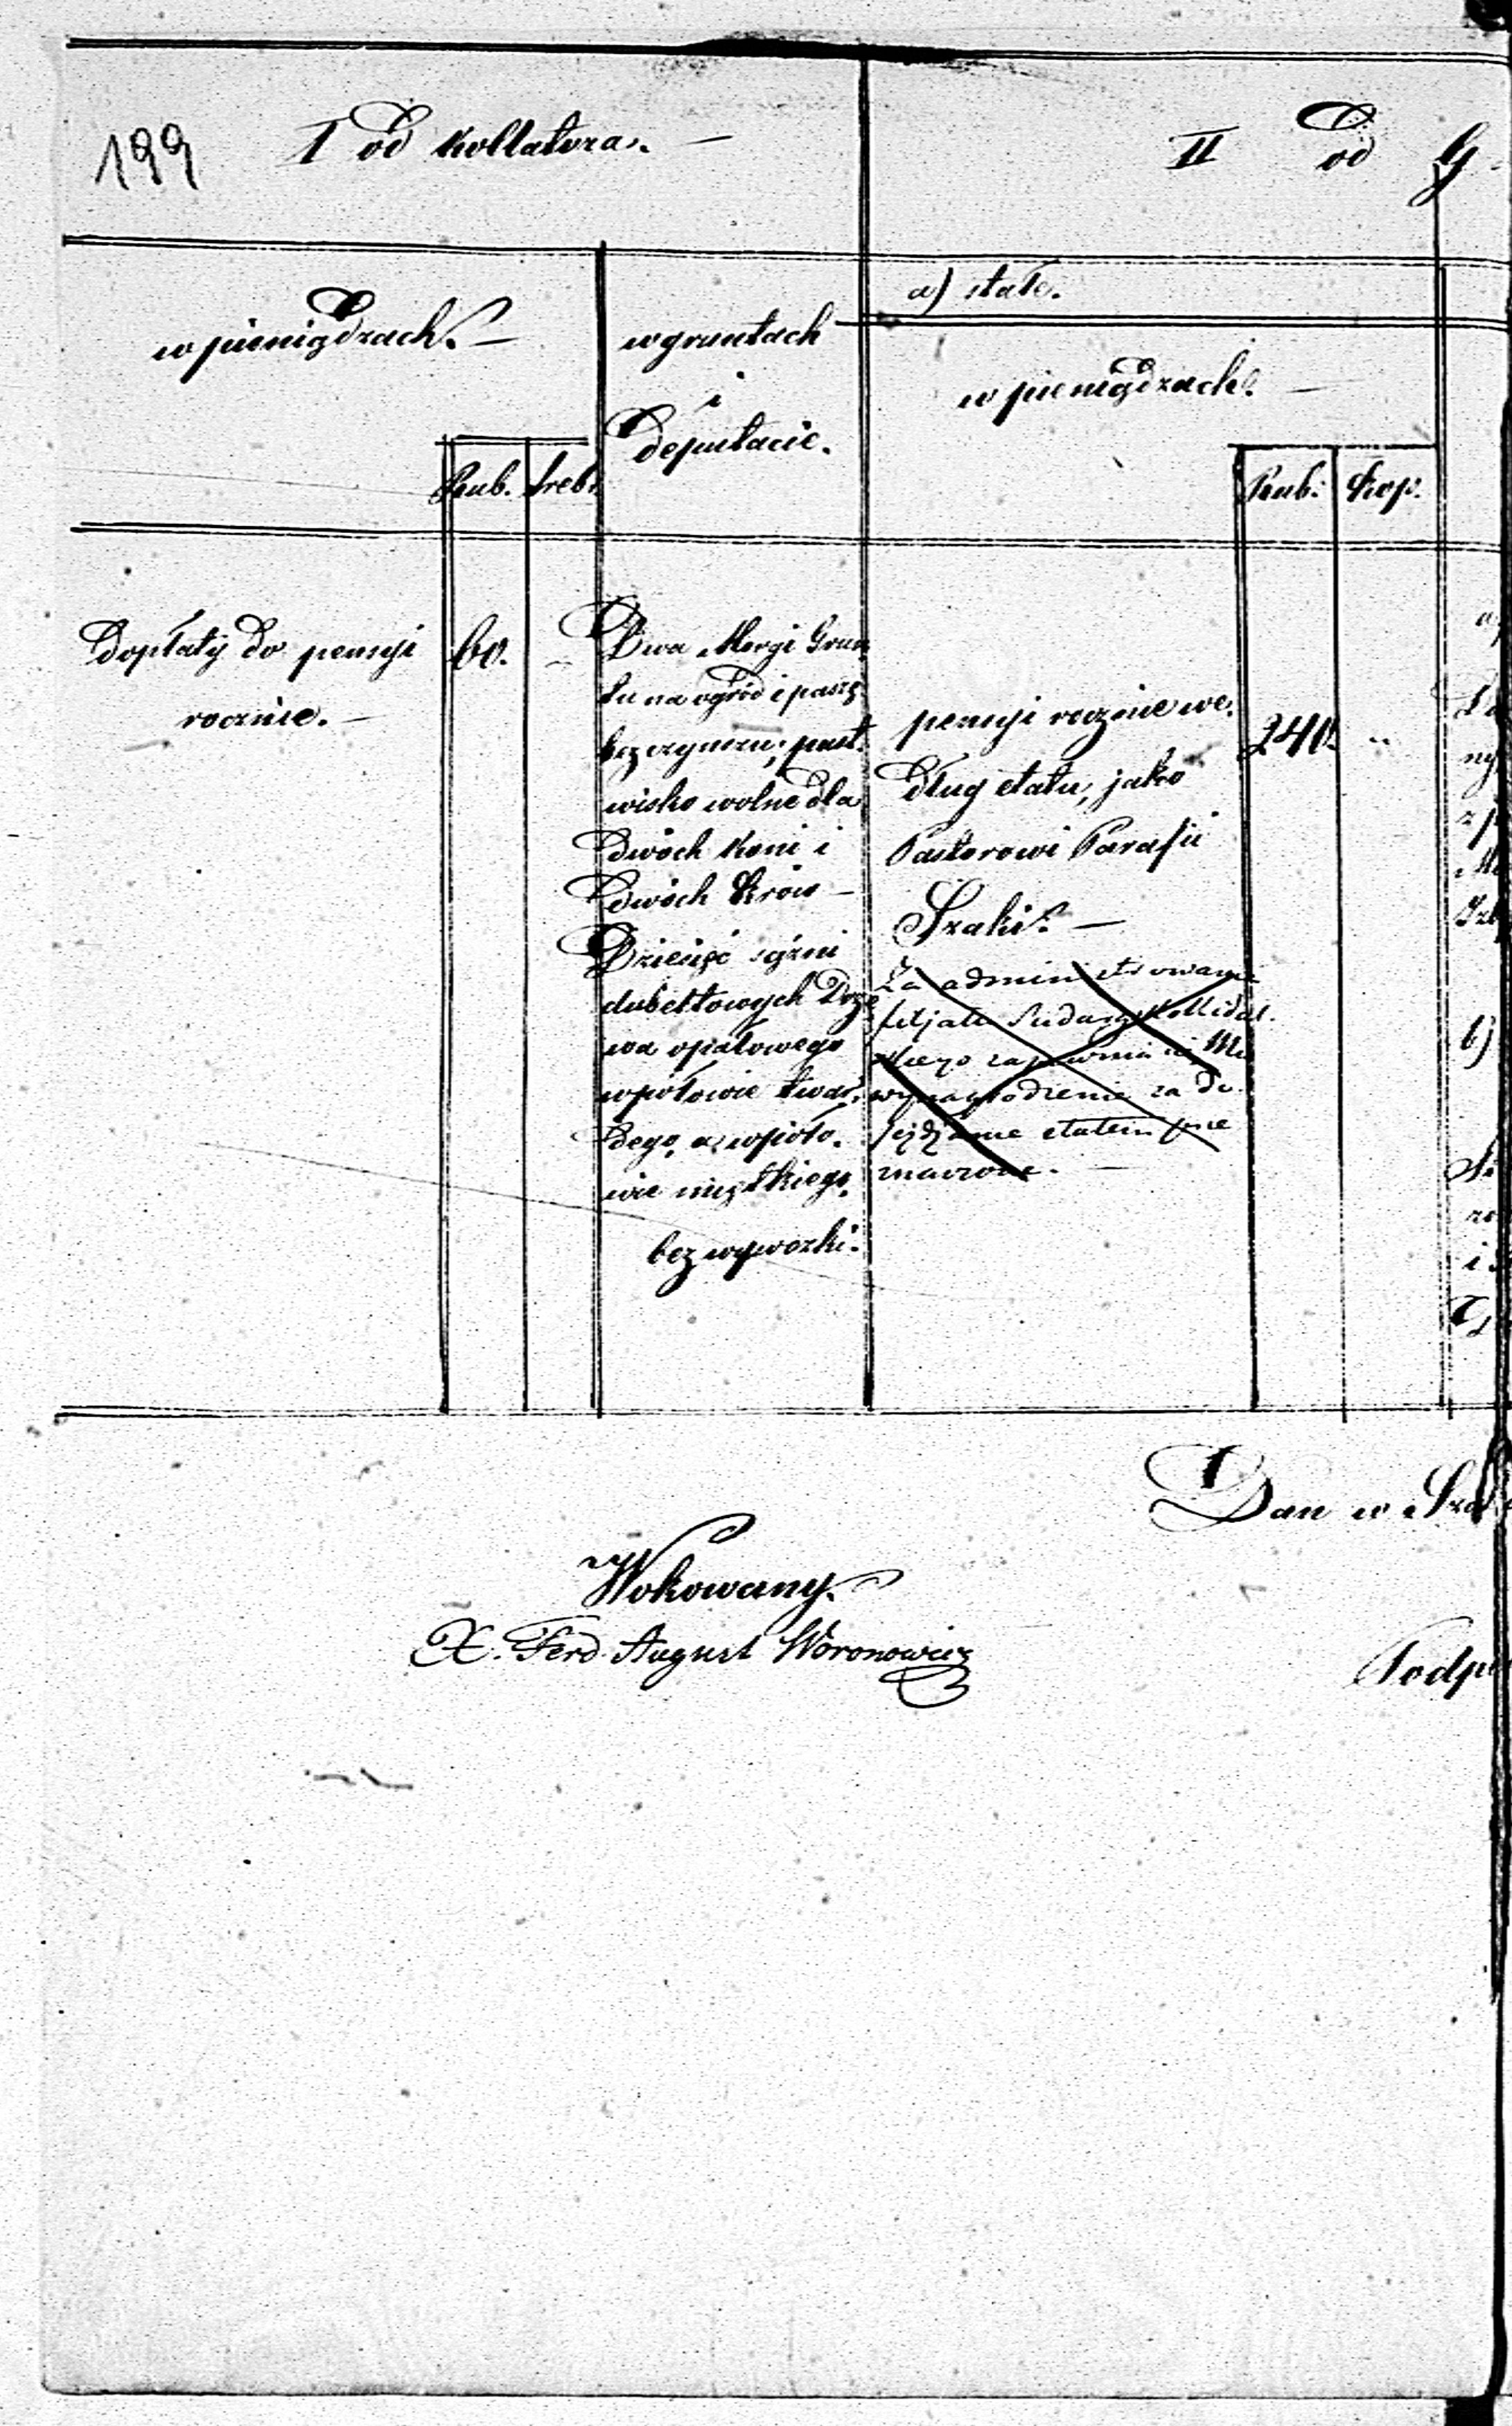 199 I od kollatora. — II od G
w pieniądzach. —
w gruntach
i
deputacie.
a) stałe.
w pieniądzach. —
Rub. Sreb.
Rub. Kop.
Dopłaty do pensyi
rocznie. —
60.
Dwa Morgi Grun
tu na ogród i paszę
bez czynszu; past.
wisko wolne dla
dwóch koni i
dwóch krów —
Dziesięć sążni
dubeltowych Drze
wa opałowego
w połowie twar.
dego, a w poło.
wie miękkiego,
bez wywozki.
pensyi rocznie we.
dług etatu, jako
Pastorowi Parafii
Szaki. —
Za administrowanie
filjału Sudarg
skiego zapewnia
wynagrodzenie za do
jeżdżanie etatem
znaczone. —
240.
a)
b)
i
Dan w Sza
Wokowany.
X. Ferd. August Woronowicz
Podp